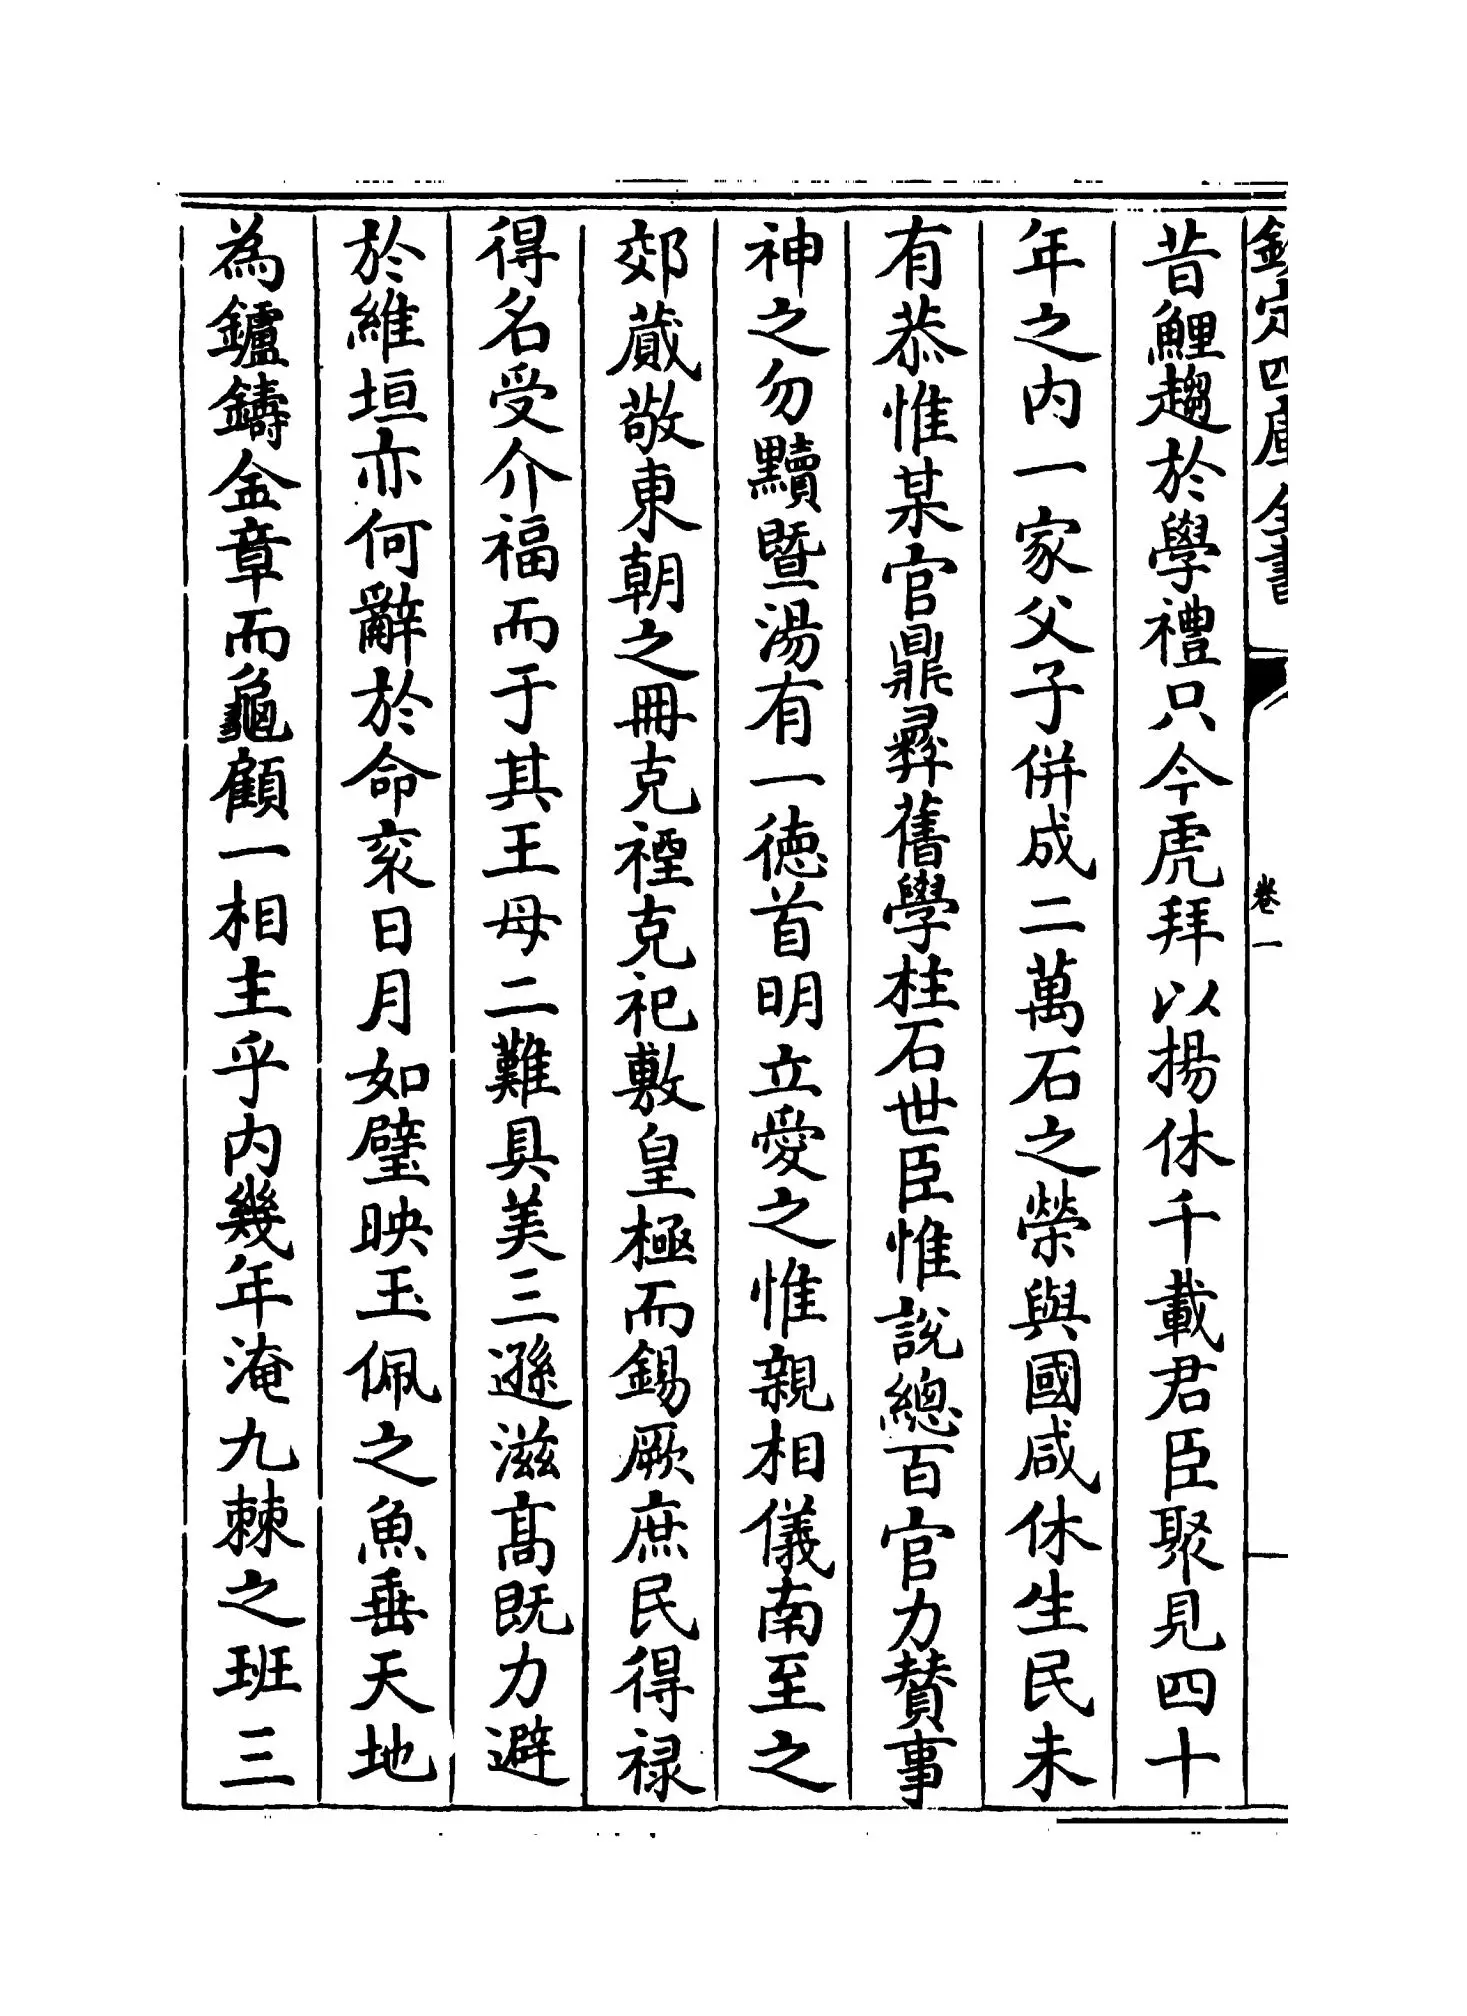 欽定四庫全書
卷一
昔鯉趨於學禮只今虎拜以揚休千載君臣聚見四十
年之内一家父子併成二萬石之榮與國咸休生民未
有恭惟某官鼎彞舊學柱石世臣惟說總百官力賛事
神之勿黷暨湯有一德首明立愛之惟親相儀南至之
郊蕆敬東朝之冊克禋克祀敷皇極而錫厥庶民得禄
得名受介福而于其王母二難具美三遜滋髙既力避
於維垣亦何辭於命衮日月如璧映玉佩之魚垂天地
為鑪鑄金章而龜顧一相主乎内幾年淹九棘之班三